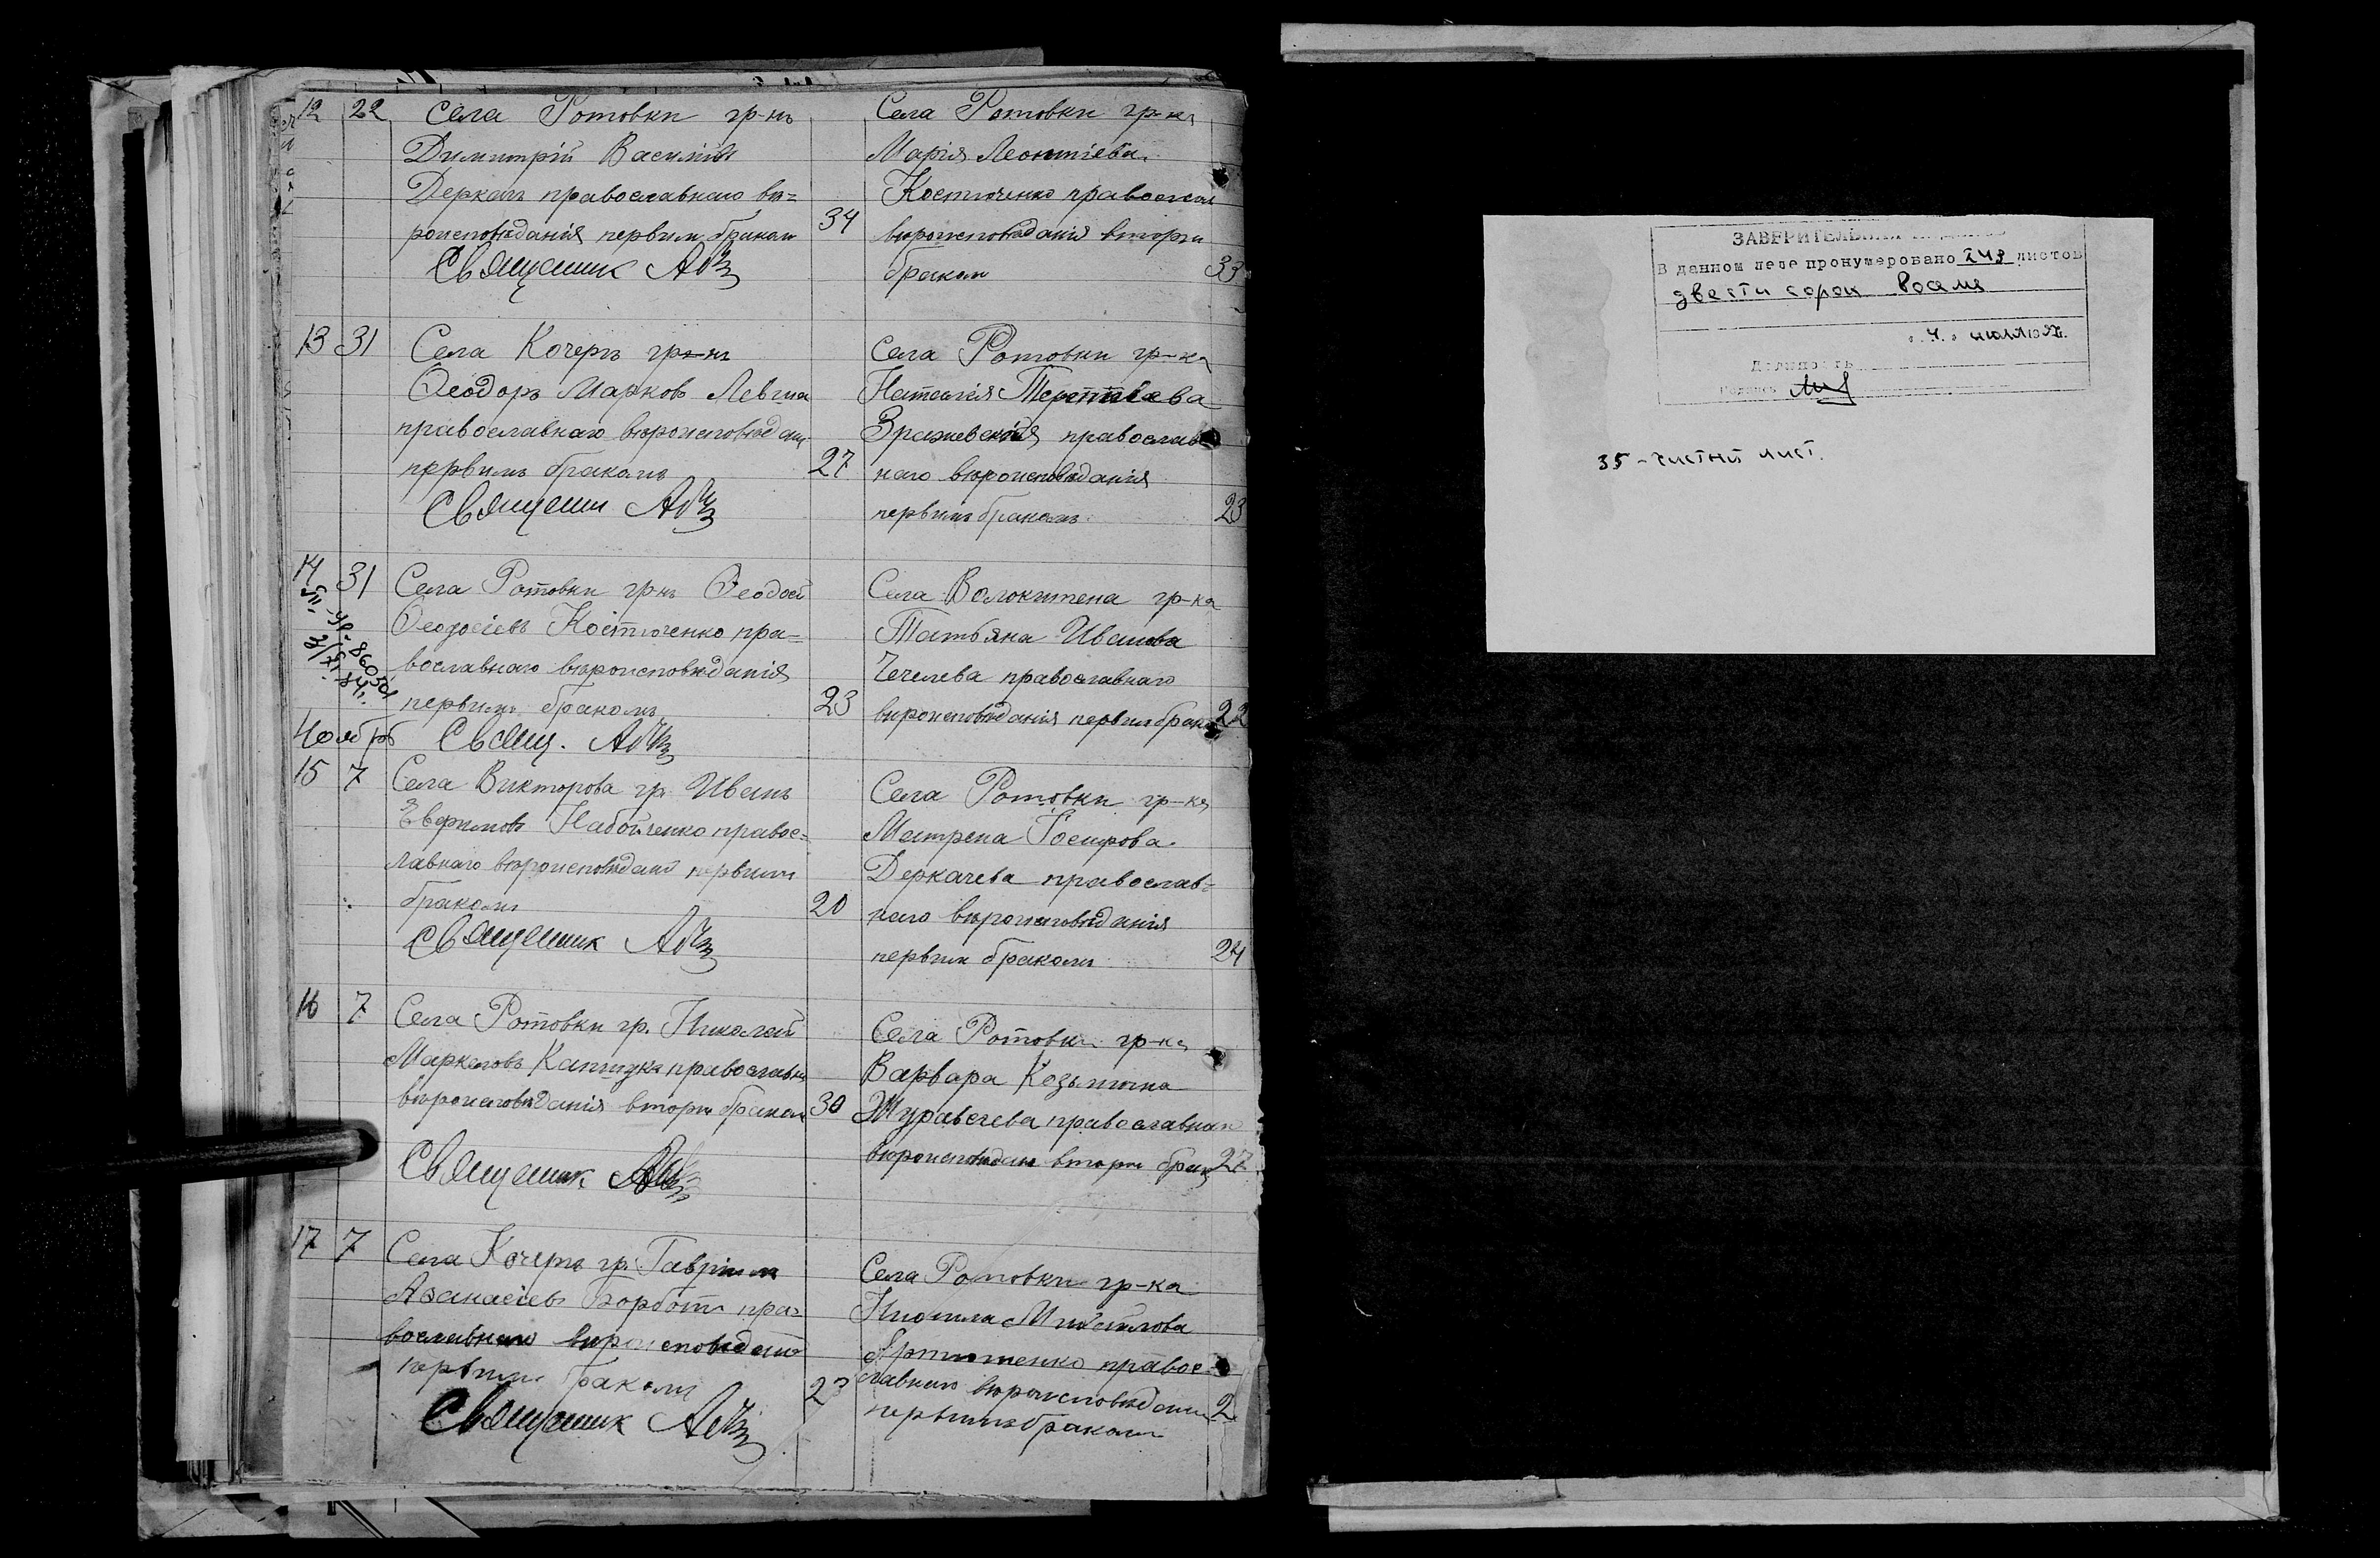 12 22 Села Ротовки гр-нъ
Димитрій Василіевъ
Деркачъ православнаго вѣ=
роисповѣданія первим браком 34
Священик
Села Ротовки гр-ка
Марія Леонтіева
Костюченко православ
вѣроисповѣданія вторым
браком 33
13 31 Села Кочергъ гр-нъ
Ѳеодоръ Марковъ Левша
православнаго вѣроисповѣдан
первимъ бракомъ 27
Священик
Села Ротовки гр-ка
Наталія Терентіева
Вражевская православ
наго вѣроисповѣданія
первимъ бракомъ 23
14 31 Села Ротовки гр-нъ Ѳеодосій
Ѳеодосіевъ Костюченко пра=
вославнаго вѣроисповѣданія
первимъ бракомъ 23
Свящ.
Села Волокитена гр-ка
Татьяна Иванова
Чечелева православнаго
вѣроисповѣданія первим брак 22
Ноябрь
15 7 Села Викторова гр. Иванъ
Евфимовъ Набойченко правос=
лавнаго вѣроисповѣданій первим
браком 20
Священик
Села Ротовки гр-ка
Матрена
Деркачева православ=
наго вѣроисповѣданія
первим браком 24
16 7 Села Ротовки гр. Николай
Маркеловъ православн
вѣроисповѣданія втором браком 30
Священик
Села Ротовки гр-ка
Варвара Козьмина
Журавлева православнаго
вѣроисповѣдан втором брак 27
17 7 Села Кочергъ гр. Гавріил
Аѳанасіевъ Борботъ пра=
вославнаго вѣроисповѣданій
первим браком 23
Священик
Села Ротовки гр-ка
Михайлова
Артюшенко правос
лавнаго вѣроисповѣдани 2
первимъ браком
ЗАВЕРИТЕЛЬНАЯ
В данном деле пронумеровано 248 листов
двести сорок восемь
Должность
Подпись
35 - чистый лист.